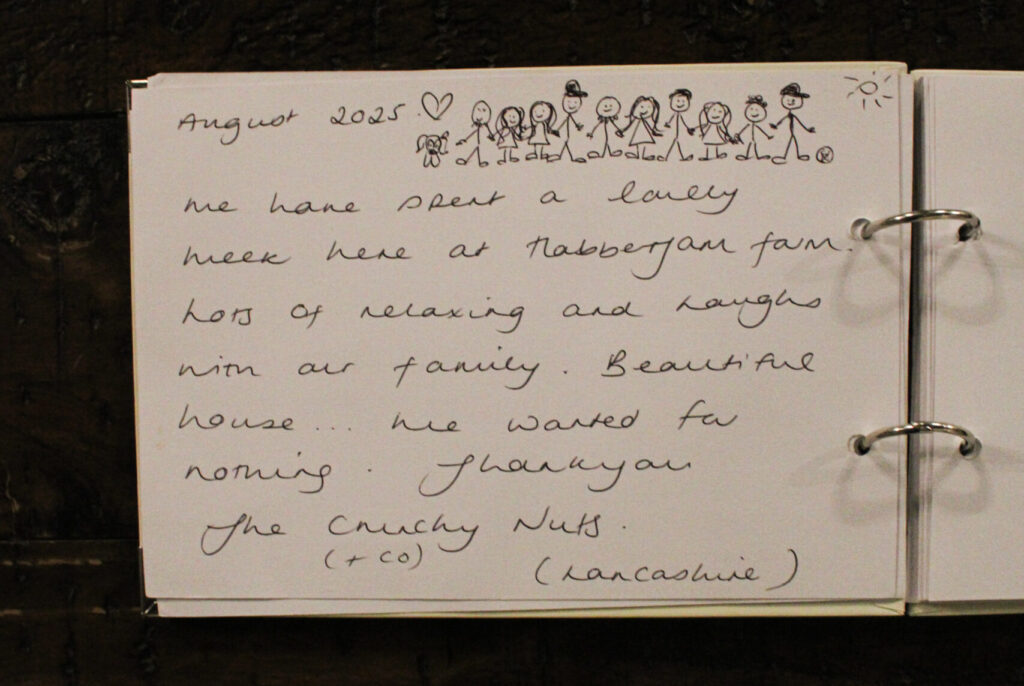 August 2025
We have spent a lovely
week here at Flabberjam farm.
Lots of relaxing and Laughs
with our family. Beautiful
house... We wanted for
nothing. Thankyou
The Crunchy Nuts.
(+ co)
(Lancashire)